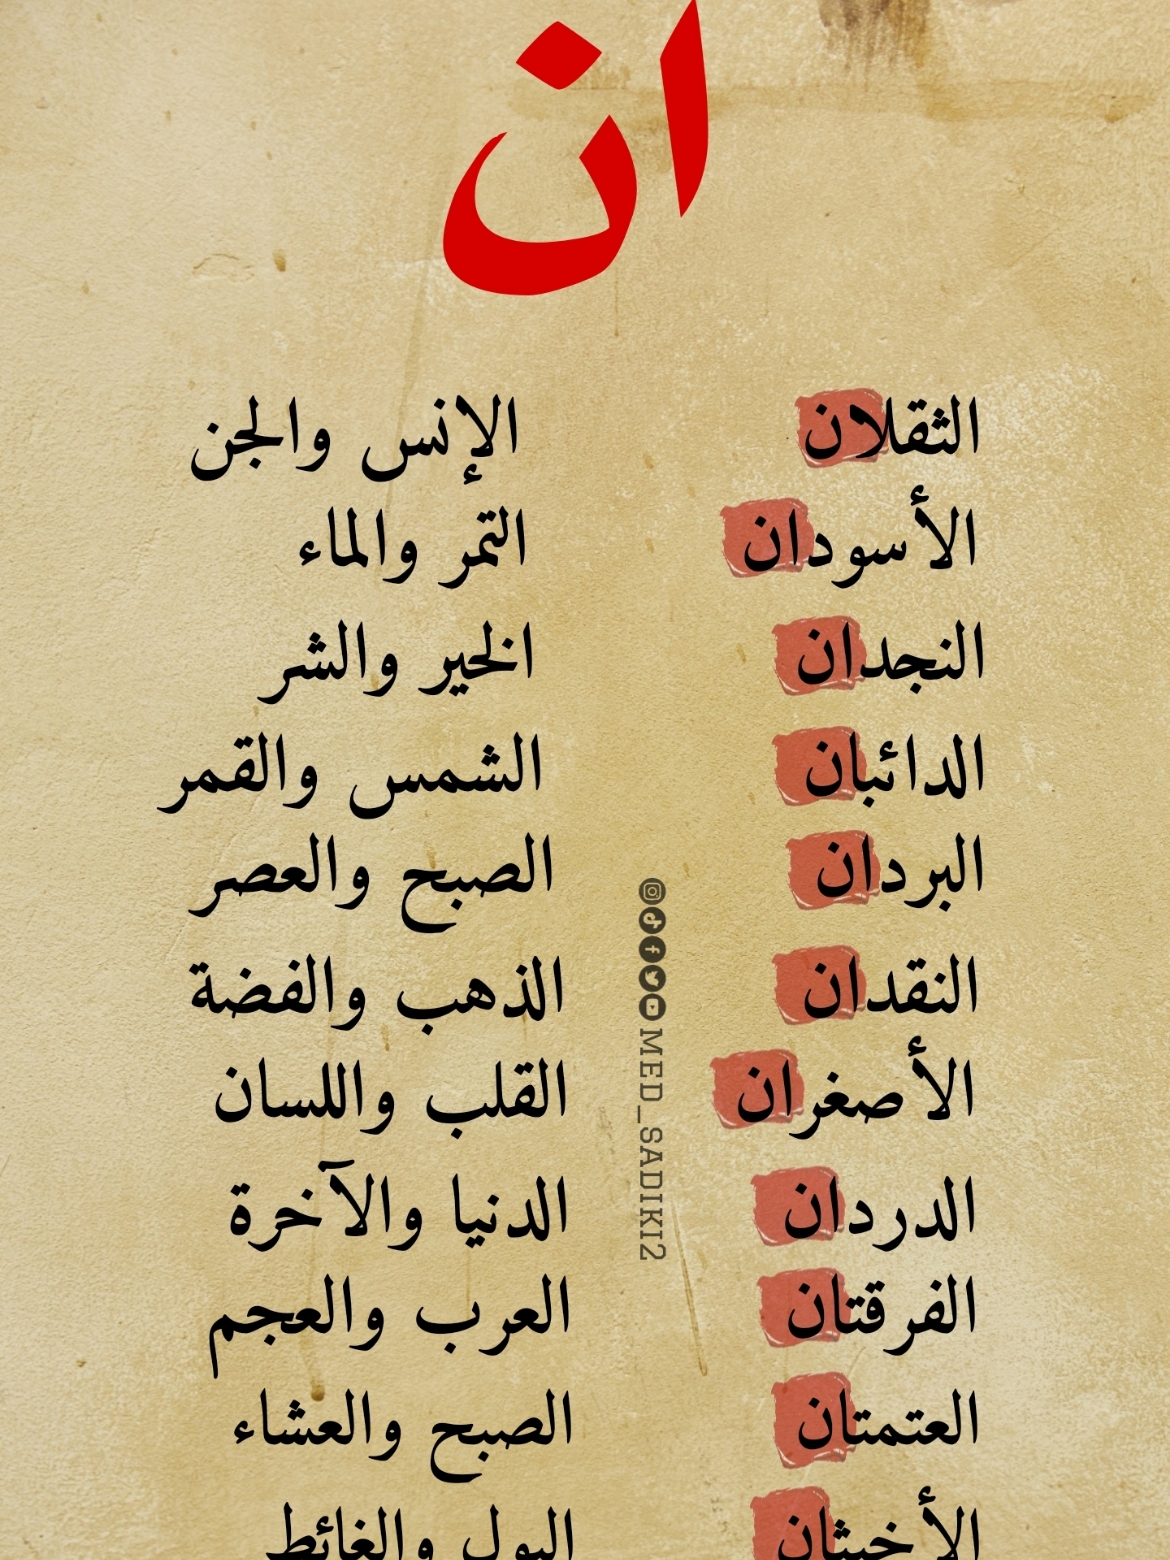 ان
الثقلان الإنس والجن
الأسودان التمر والماء
النجدان الخير والشر
الدائبان الشمس والقمر
البردان الصبح والعصر
النقدان الذهب والفضة
الأصغران القلب واللسان
الدردان الدنيا والآخرة
الفرقتان العرب والعجم
العتمتان الصبح والعشاء
الأخبثان البول والغائط
MED_SADIKI2